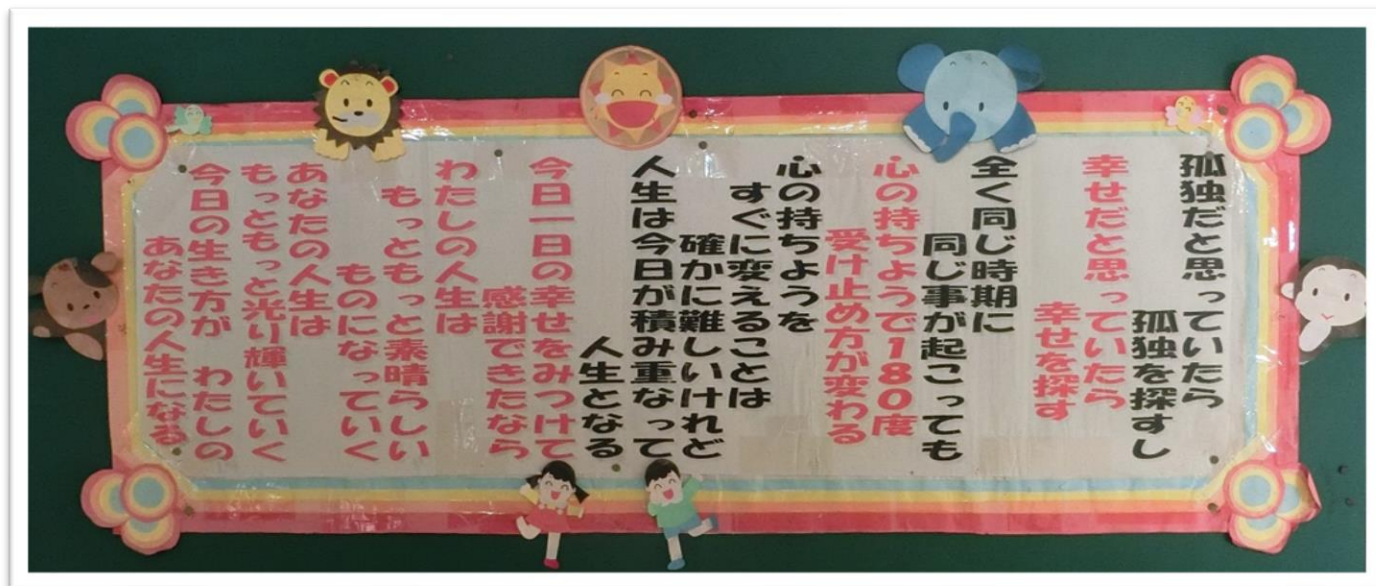 孤独だと思っていたら
孤独を探すし
幸せだと思っていたら
幸せを探す
全く同じ時期に
同じ事が起こっても
心の持ちようで180度
受け止め方が変わる
心の持ちようを
すぐに変えることは
確かに難しいけれど
人生は今日が積み重なって
人生となる
今日一日の幸せをみつけて
感謝できたなら
わたしの人生は
もっともっと素晴らしい
ものになっていく
あなたの人生は
もっともっと光り輝いていく
今日の生き方が わたしの
あなたの人生になる